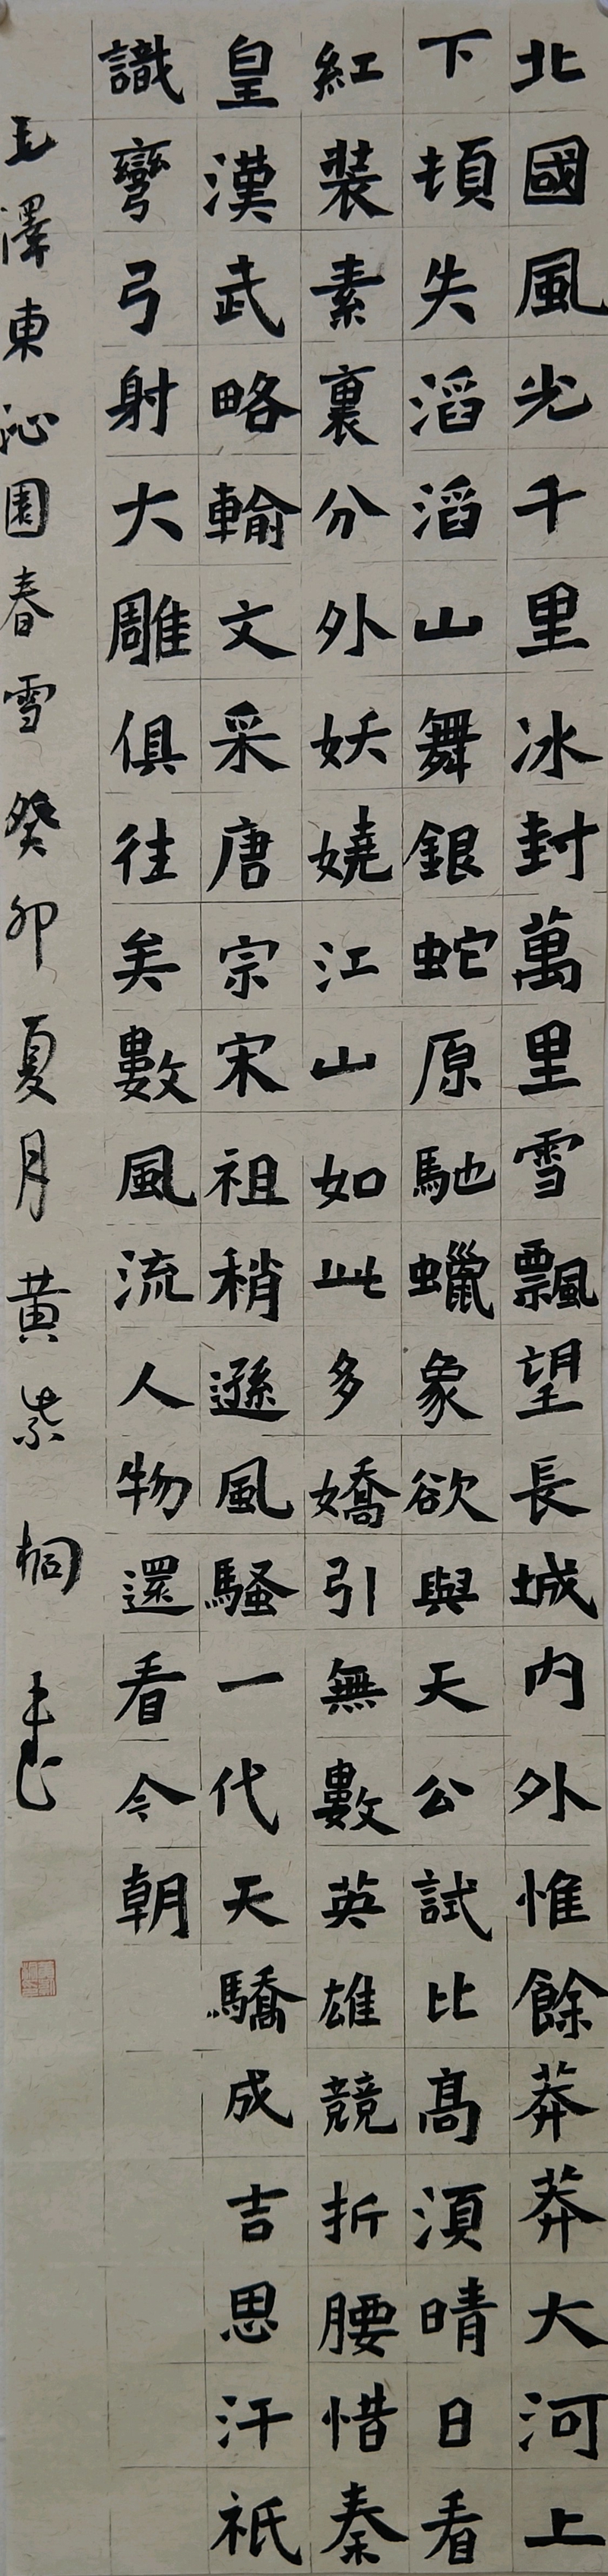 北國風光千里冰封萬里雪飄望長城内外惟餘莽莽大河上
下頓失滔滔山舞銀蛇原馳蠟象欲與天公試比高須晴日看
紅裝素裹分外妖嬈江山如此多嬌引無數英雄競折腰惜秦
皇漢武略輸文采唐宗宋祖稍遜風騷一代天驕成吉思汗祇
識彎弓射大雕俱往矣數風流人物還看今朝
毛澤東沁園春雪癸卯夏月黄紫桐書